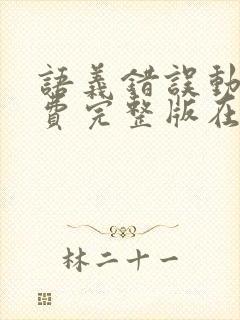 語義錯誤動
費完整版在
林二十一